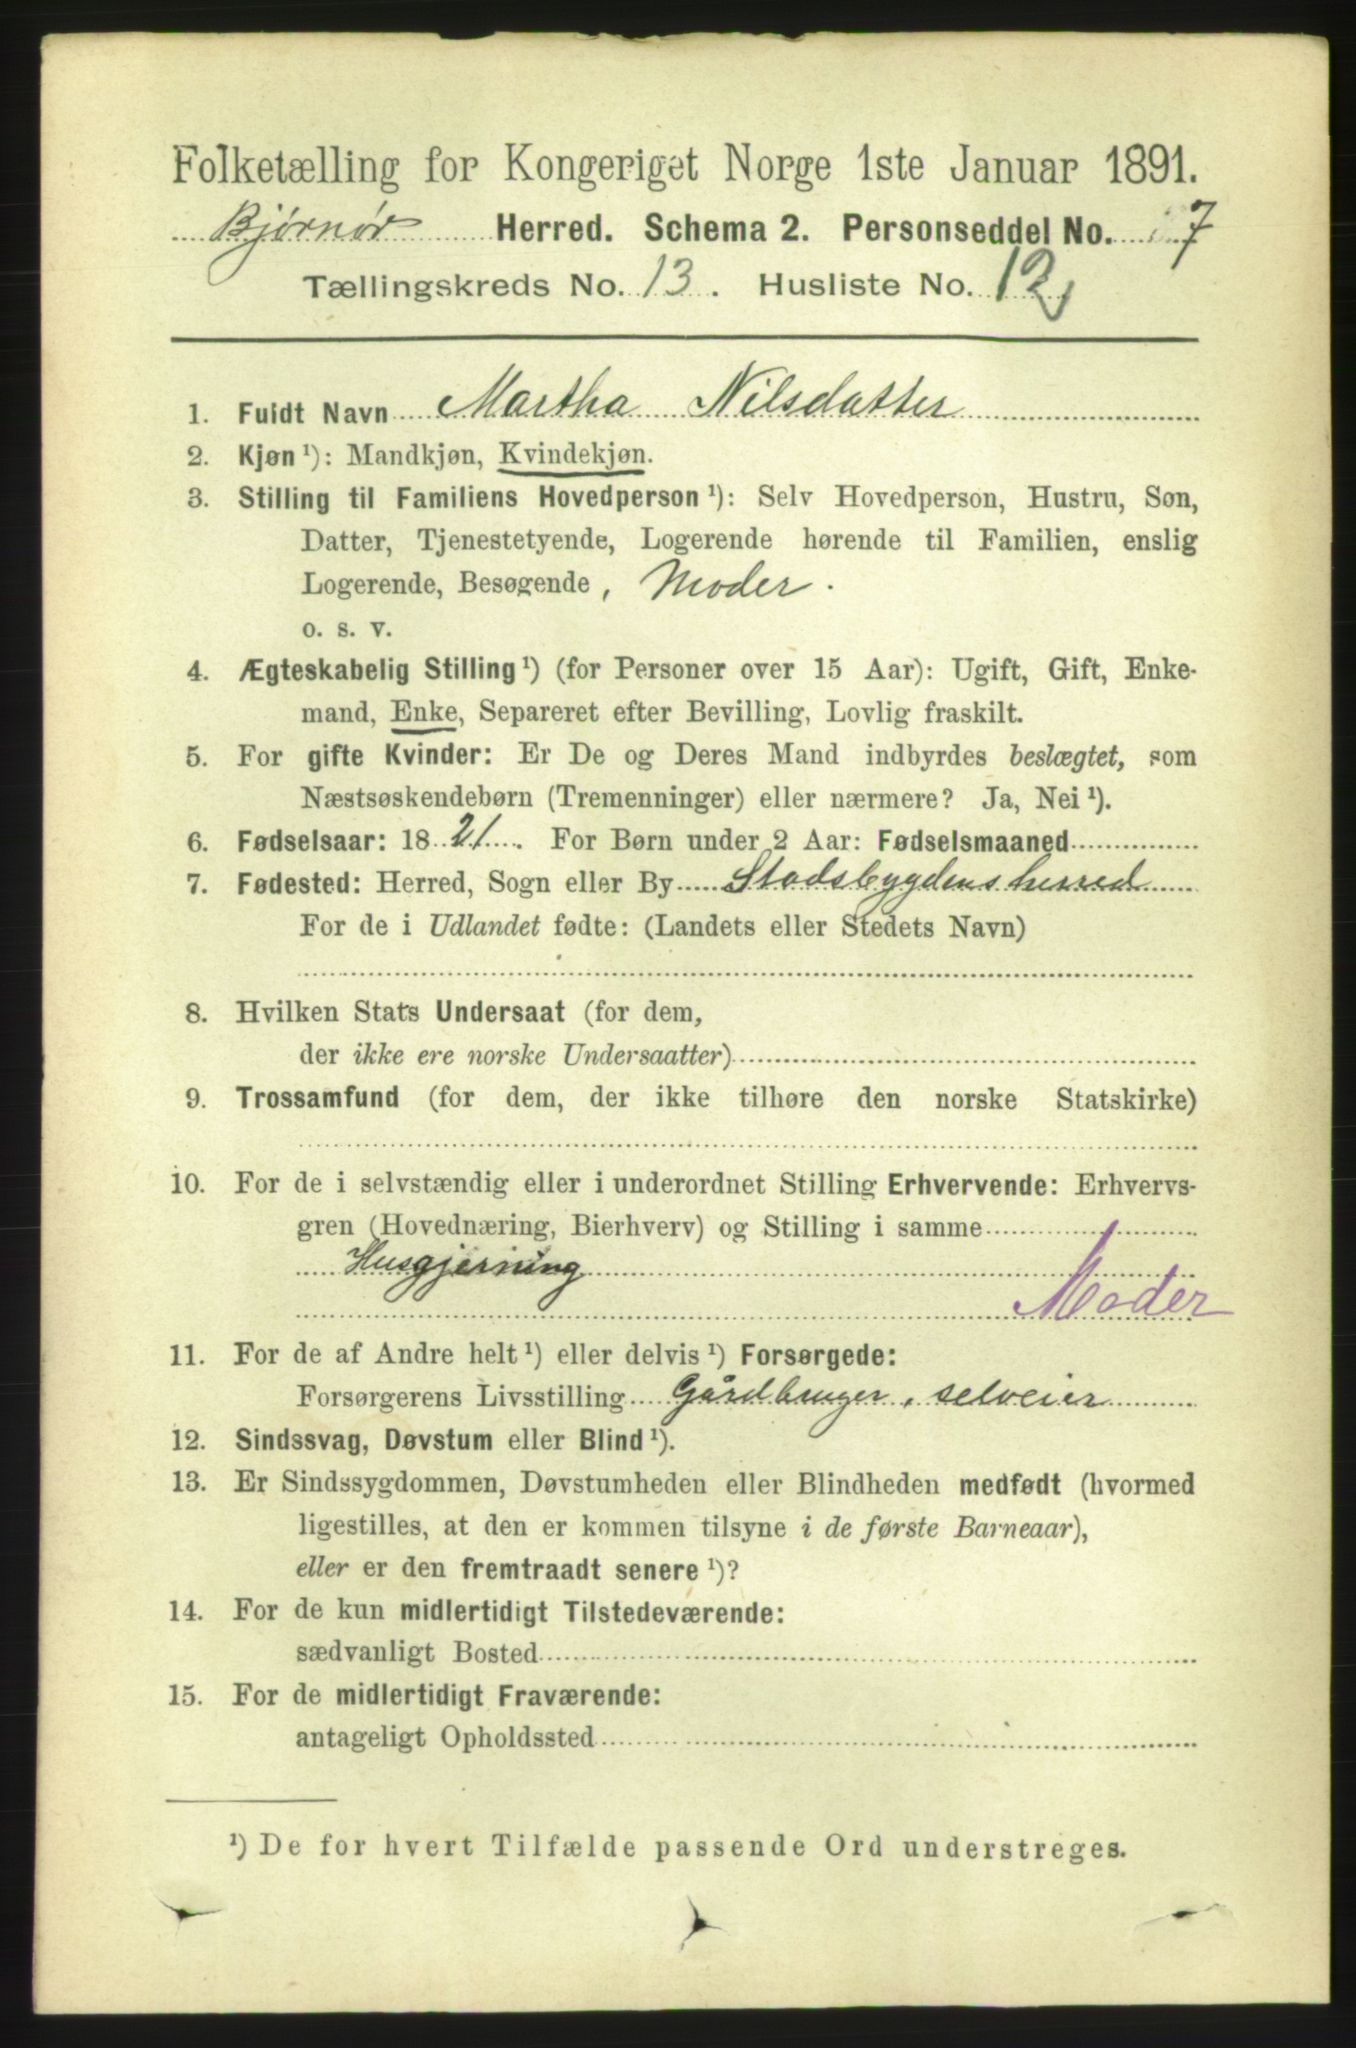 Folketælling for Kongeriget Norge 1ste Januar 1891.
Bjørnør Herred. Schema 2. Personseddel No. 7
Tællingskreds No. 13. Husliste No. 12
1. Fuldt Navn Martha Nilsdatter
2. Kjøn ¹): Mandkjøn, Kvindekjøn.
3. Stilling til Familiens Hovedperson ¹): Selv Hovedperson, Hustru, Søn,
Datter, Tjenestetyende, Logerende hørende til Familien, enslig
Logerende, Besøgende, Moder.
o. s. v.
4. Ægteskabelig Stilling ¹) (for Personer over 15 Aar): Ugift, Gift, Enke-
mand, Enke, Separeret efter Bevilling, Lovlig fraskilt.
5. For gifte Kvinder: Er De og Deres Mand indbyrdes beslægtet, som
Næstsøskendebørn (Tremenninger) eller nærmere? Ja, Nei ¹).
6. Fødselsaar: 1821. For Børn under 2 Aar: Fødselsmaaned
7. Fødested: Herred, Sogn eller By Stadsbygdens herred
For de i Udlandet fødte: (Landets eller Stedets Navn)
8. Hvilken Stats Undersaat (for dem,
der ikke ere norske Undersaatter)
9. Trossamfund (for dem, der ikke tilhøre den norske Statskirke)
10. For de i selvstændig eller i underordnet Stilling Erhvervende: Erhvervs-
gren (Hovednæring, Bierhverv) og Stilling i samme
Husgjerning
Moder
11. For de af Andre helt ¹) eller delvis ¹) Forsørgede:
Forsørgerens Livsstilling Gårdbruger, selveier
12. Sindssvag, Døvstum eller Blind ¹).
13. Er Sindssygdommen, Døvstumheden eller Blindheden medfødt (hvormed
ligestilles, at den er kommen tilsyne i de første Barneaar),
eller er den fremtraadt senere ¹)?
14. For de kun midlertidigt Tilstedeværende:
sædvanligt Bosted
15. For de midlertidigt Fraværende:
antageligt Opholdssted
¹) De for hvert Tilfælde passende Ord understreges.